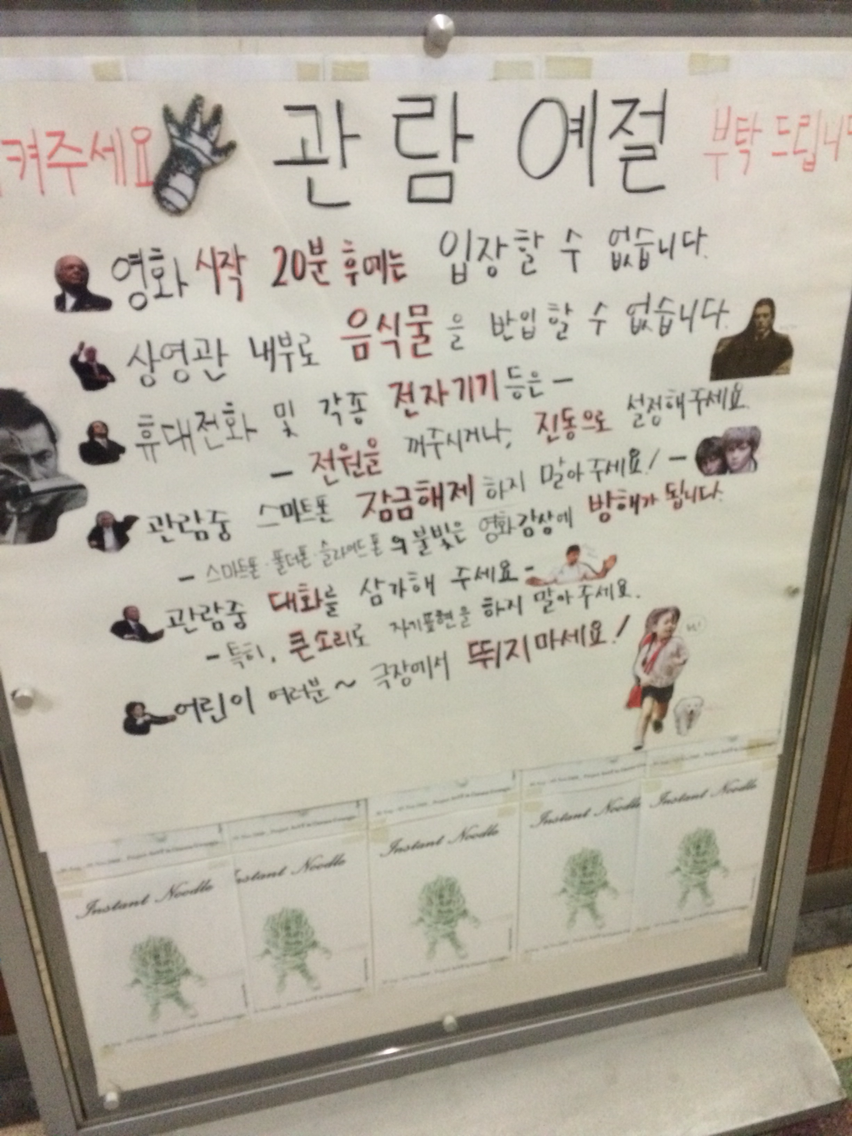 켜주세요 관람 예절 부탁 드립니다
영화 시작 20분 후에는 입장할 수 없습니다.
상영관 내부로 음식물을 반입할 수 없습니다.
휴대전화 및 각종 전자기기 등은 -
- 전원을 꺼주시거나, 진동으로 설정해주세요.
관람중 스마트폰 잠금해제 하지 말아주세요! -
- 스마트폰·폴더폰·슬라이드폰의 불빛은 영화감상에 방해가 됩니다.
관람중 대화를 삼가해 주세요 -
- 특히, 큰소리로 자기표현을 하지 말아주세요.
어린이 여러분~ 극장에서 뛰지마세요!
Instant Noodle
Instant Noodle
Instant Noodle
Instant Noodle
Instant Noodle